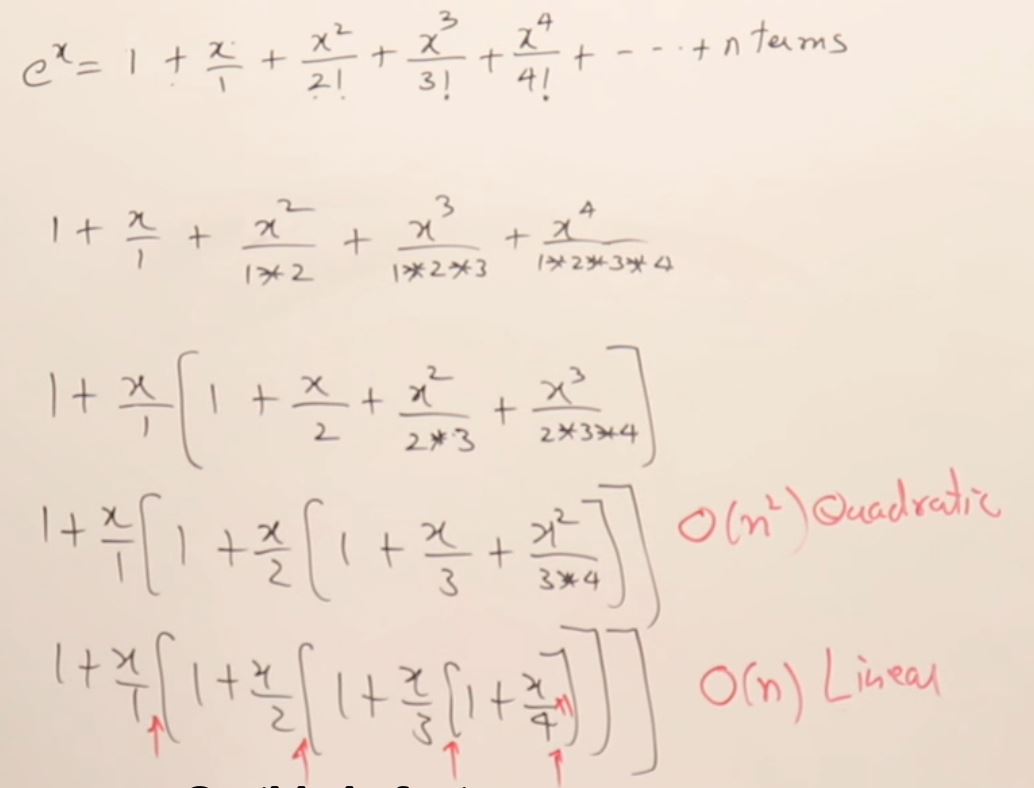 eˣ = 1 + x/1 + x²/2! + x³/3! + x⁴/4! + - - - · + n terms
1 + x/1 + x²/(1*2) + x³/(1*2*3) + x⁴/(1*2*3*4)
1 + x/1 [ 1 + x/2 + x²/(2*3) + x³/(2*3*4) ]
1 + x/1 [ 1 + x/2 [ 1 + x/3 + x²/(3*4) ] ] O(n²) Quadratic
1 + x/1 [ 1 + x/2 [ 1 + x/3 [ 1 + x/4 n ] ] ] O(n) Linear